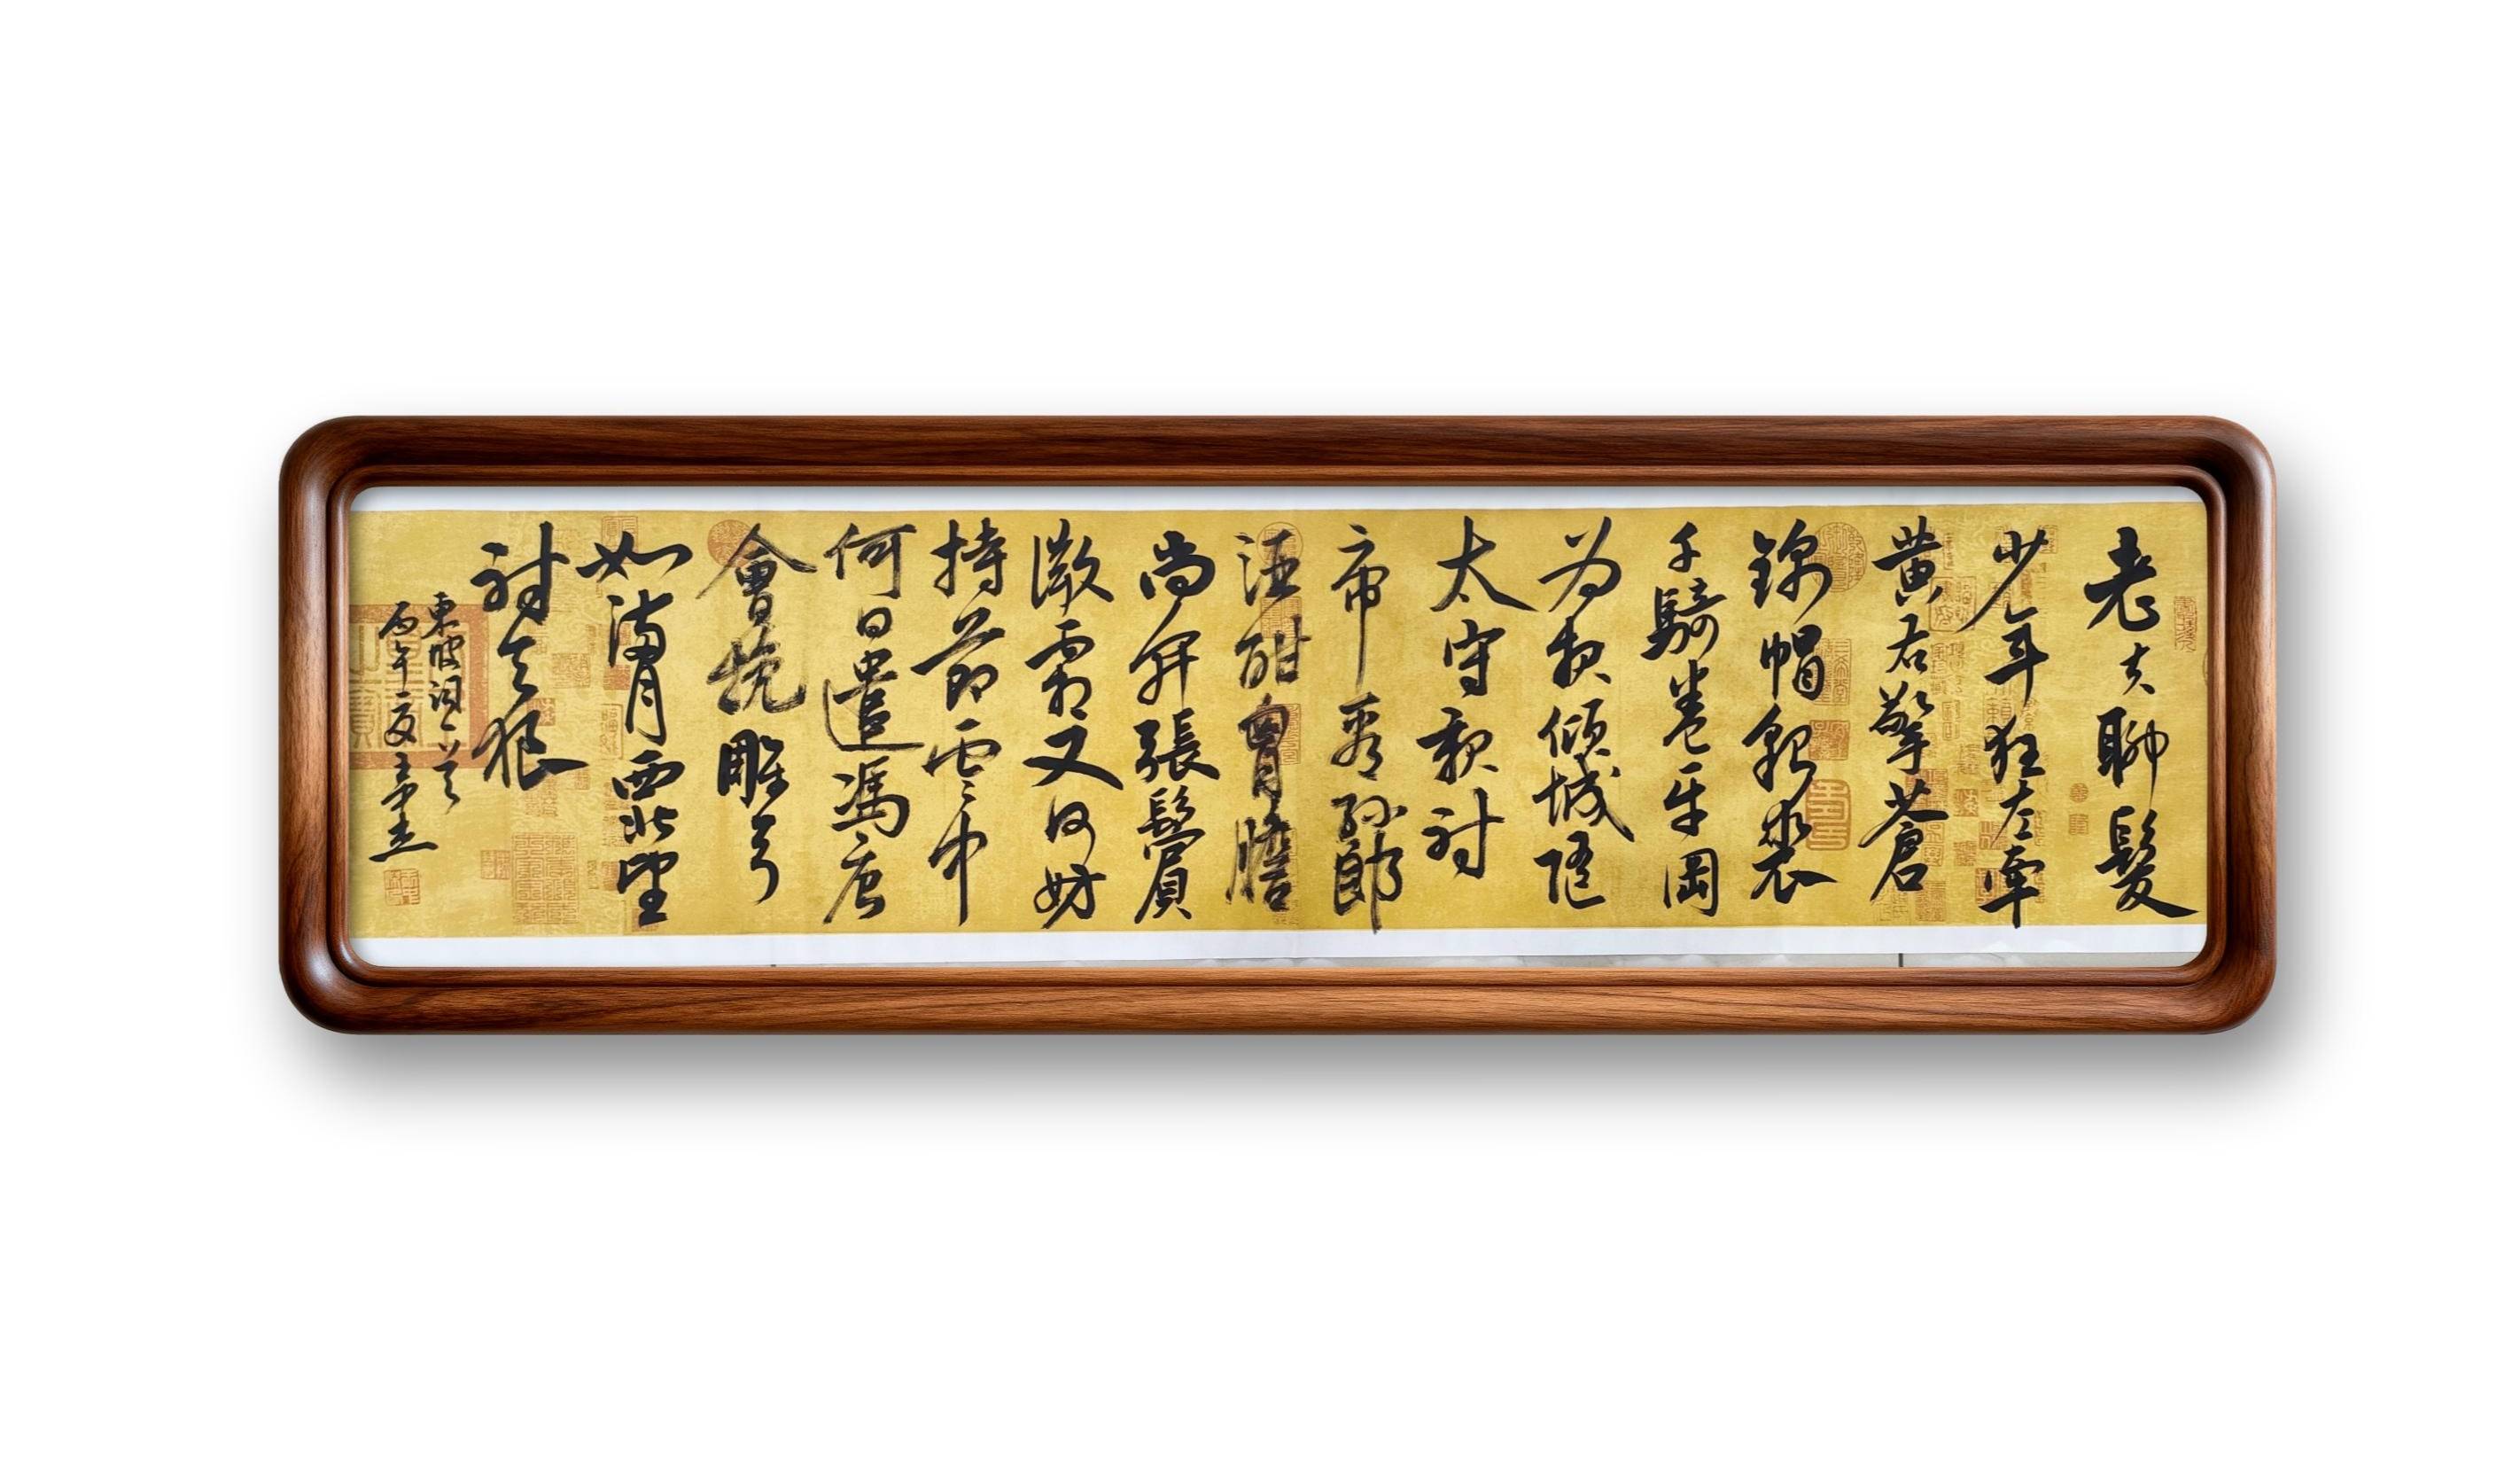 老夫聊髮
少年狂左牽
黄右擎蒼
錦帽貂裘
千騎卷平岡
为報傾城隨
太守親射
虎看孫郎
酒酣胸膽
尚开張鬢
微霜又何妨
持節雲中
何日遣馮唐
會挽雕弓
如滿月西北望
射天狼
東坡詞一首
丙午夏